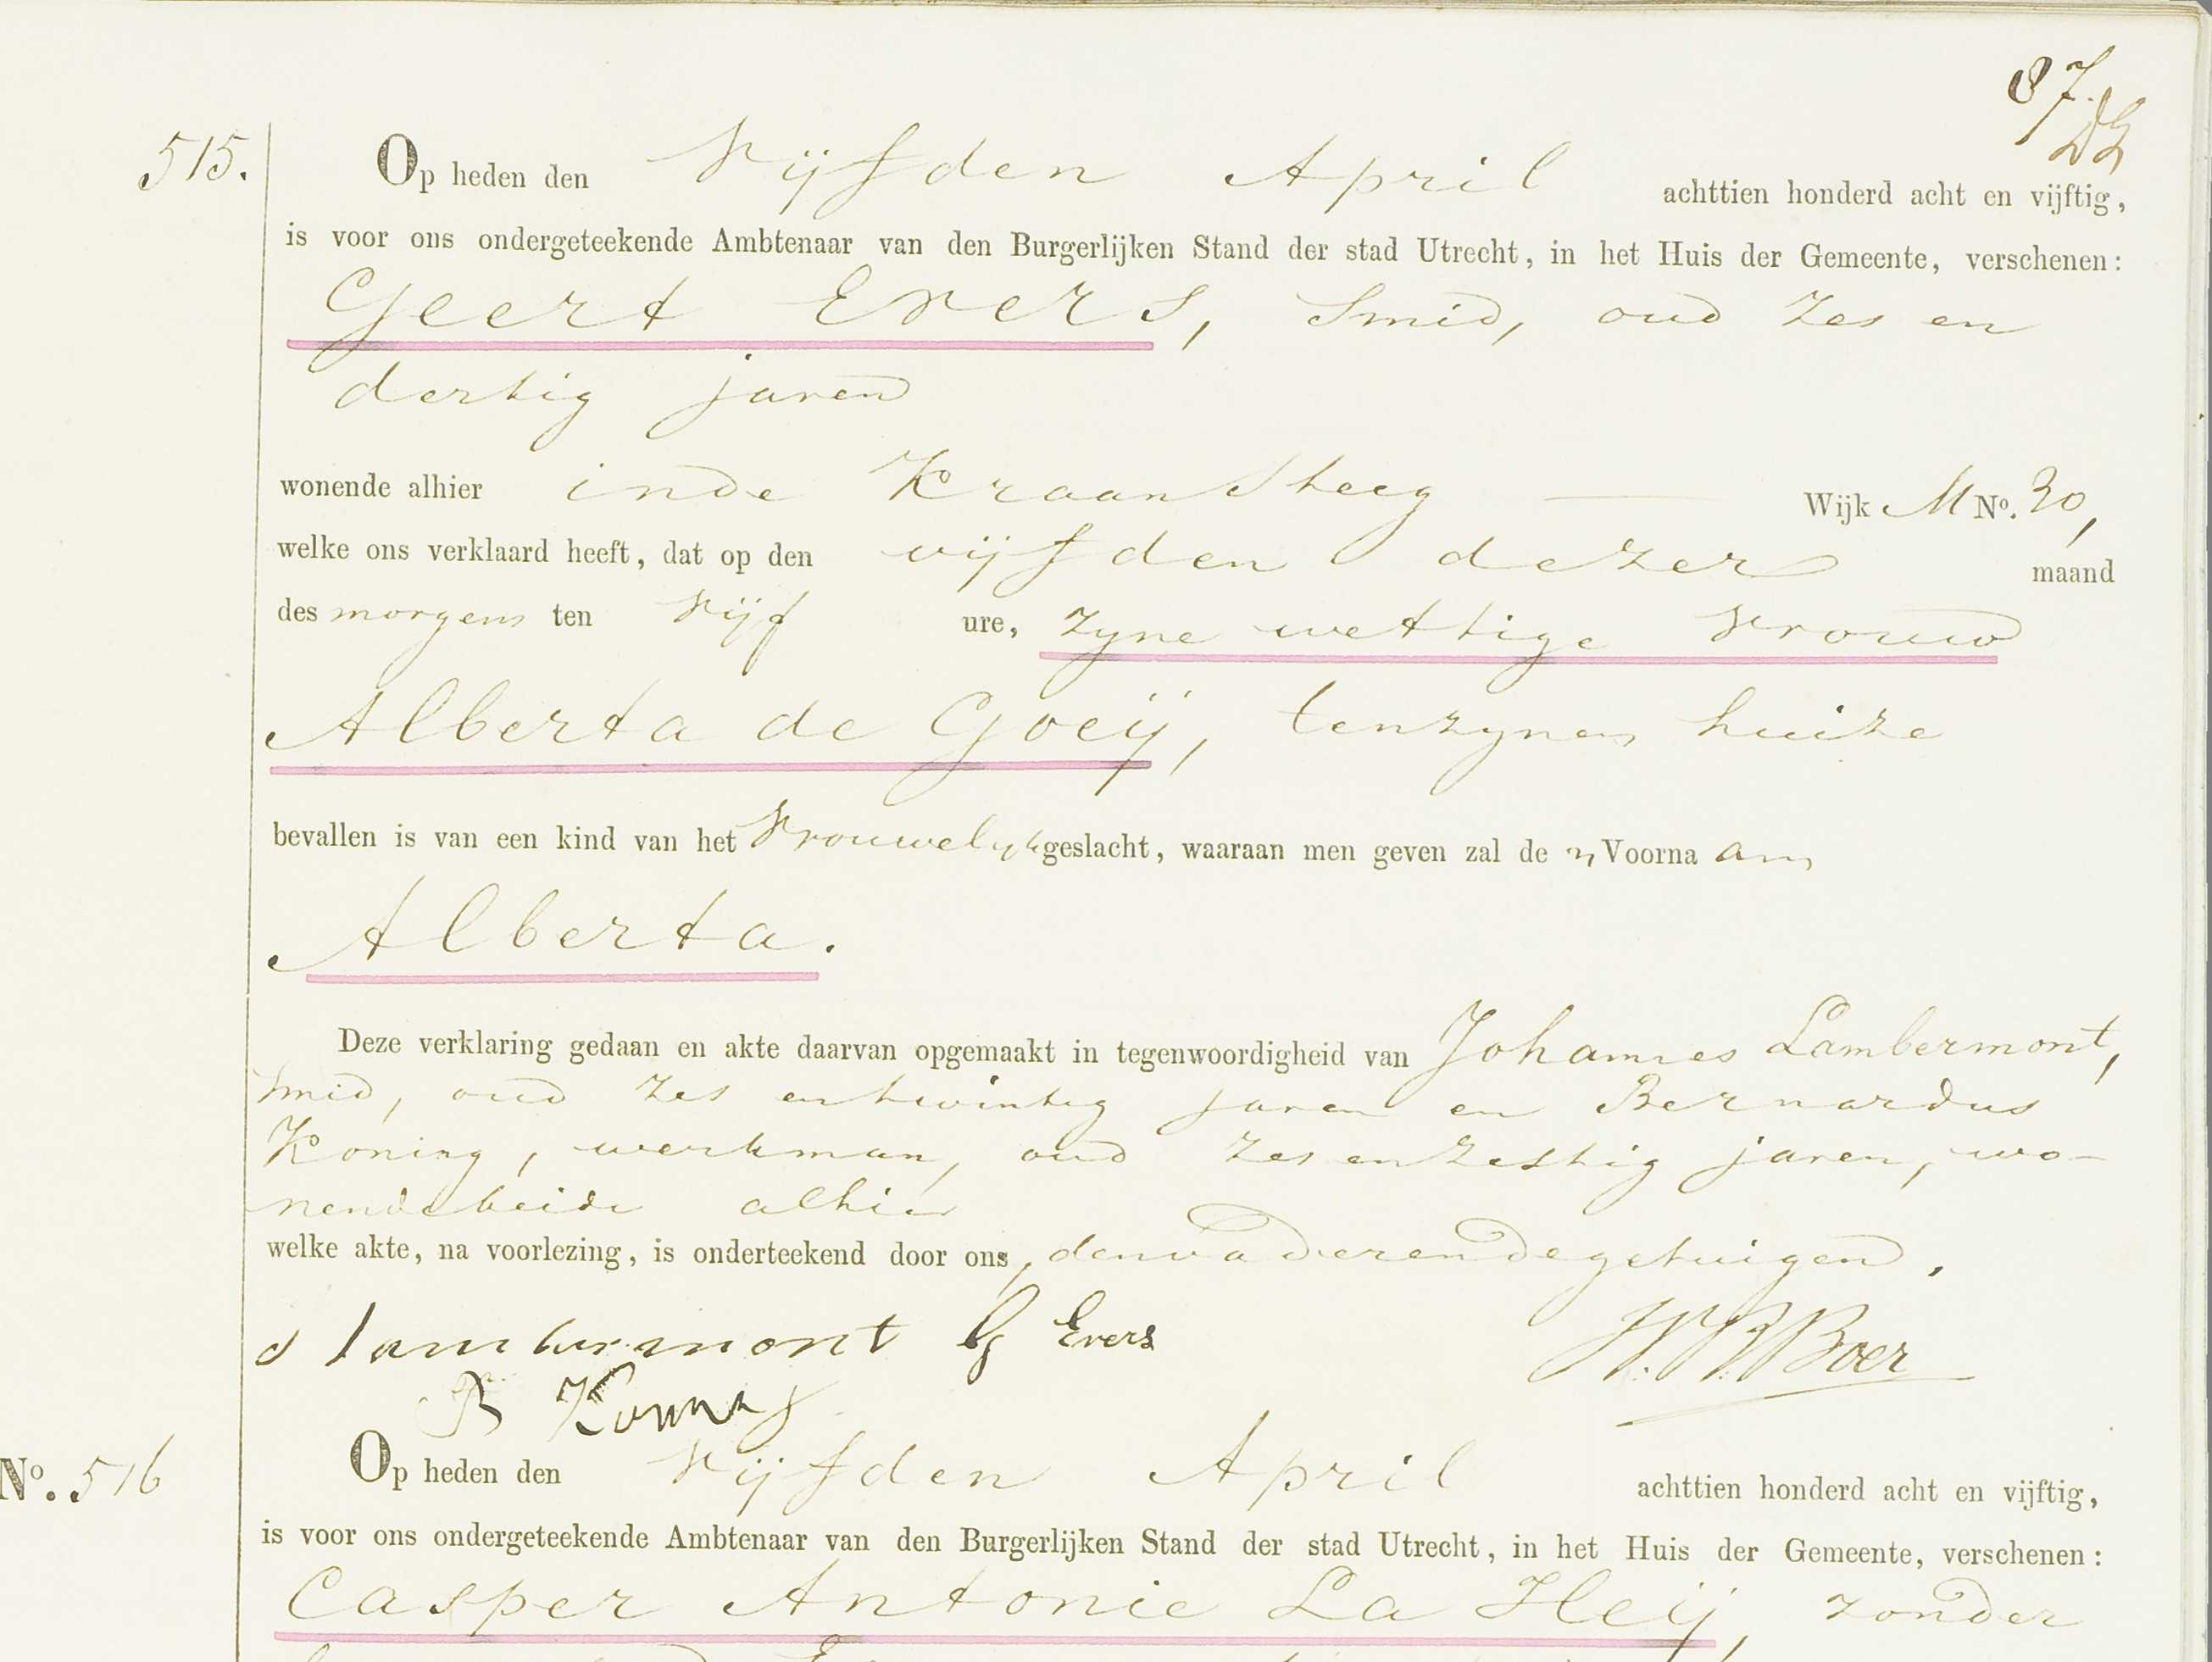 87.
515.
Op heden den Vijfden April achttien honderd acht en vijftig,
is voor ons ondergeteekende Ambtenaar van den Burgerlijken Stand der stad Utrecht, in het Huis der Gemeente, verschenen:
Geert Evers, Smid, oud zes en
dertig jaren
wonende alhier in de Kraansteeg — Wijk M No. 30,
welke ons verklaard heeft, dat op den vijfden dezer maand
des morgens ten vijf ure, zyne wettige vrouw
Alberta de Goeij, ten zynen huize
bevallen is van een kind van het vrouwelyk geslacht, waaraan men geven zal de n Voorna am
Alberta.
Deze verklaring gedaan en akte daarvan opgemaakt in tegenwoordigheid van Johannes Lambermont,
smid, oud zes en twintig jaren en Bernardus
Koning, werkman, oud zes en zestig jaren, wo-
nende beide alhier
welke akte, na voorlezing, is onderteekend door ons, den vader en de getuigen.
J lambermont G Evers W.B.Boer
B Koning
No. 516
Op heden den Vijfden April achttien honderd acht en vijftig,
is voor ons ondergeteekende Ambtenaar van den Burgerlijken Stand der stad Utrecht, in het Huis der Gemeente, verschenen:
Casper Antonie La Heij, zonder